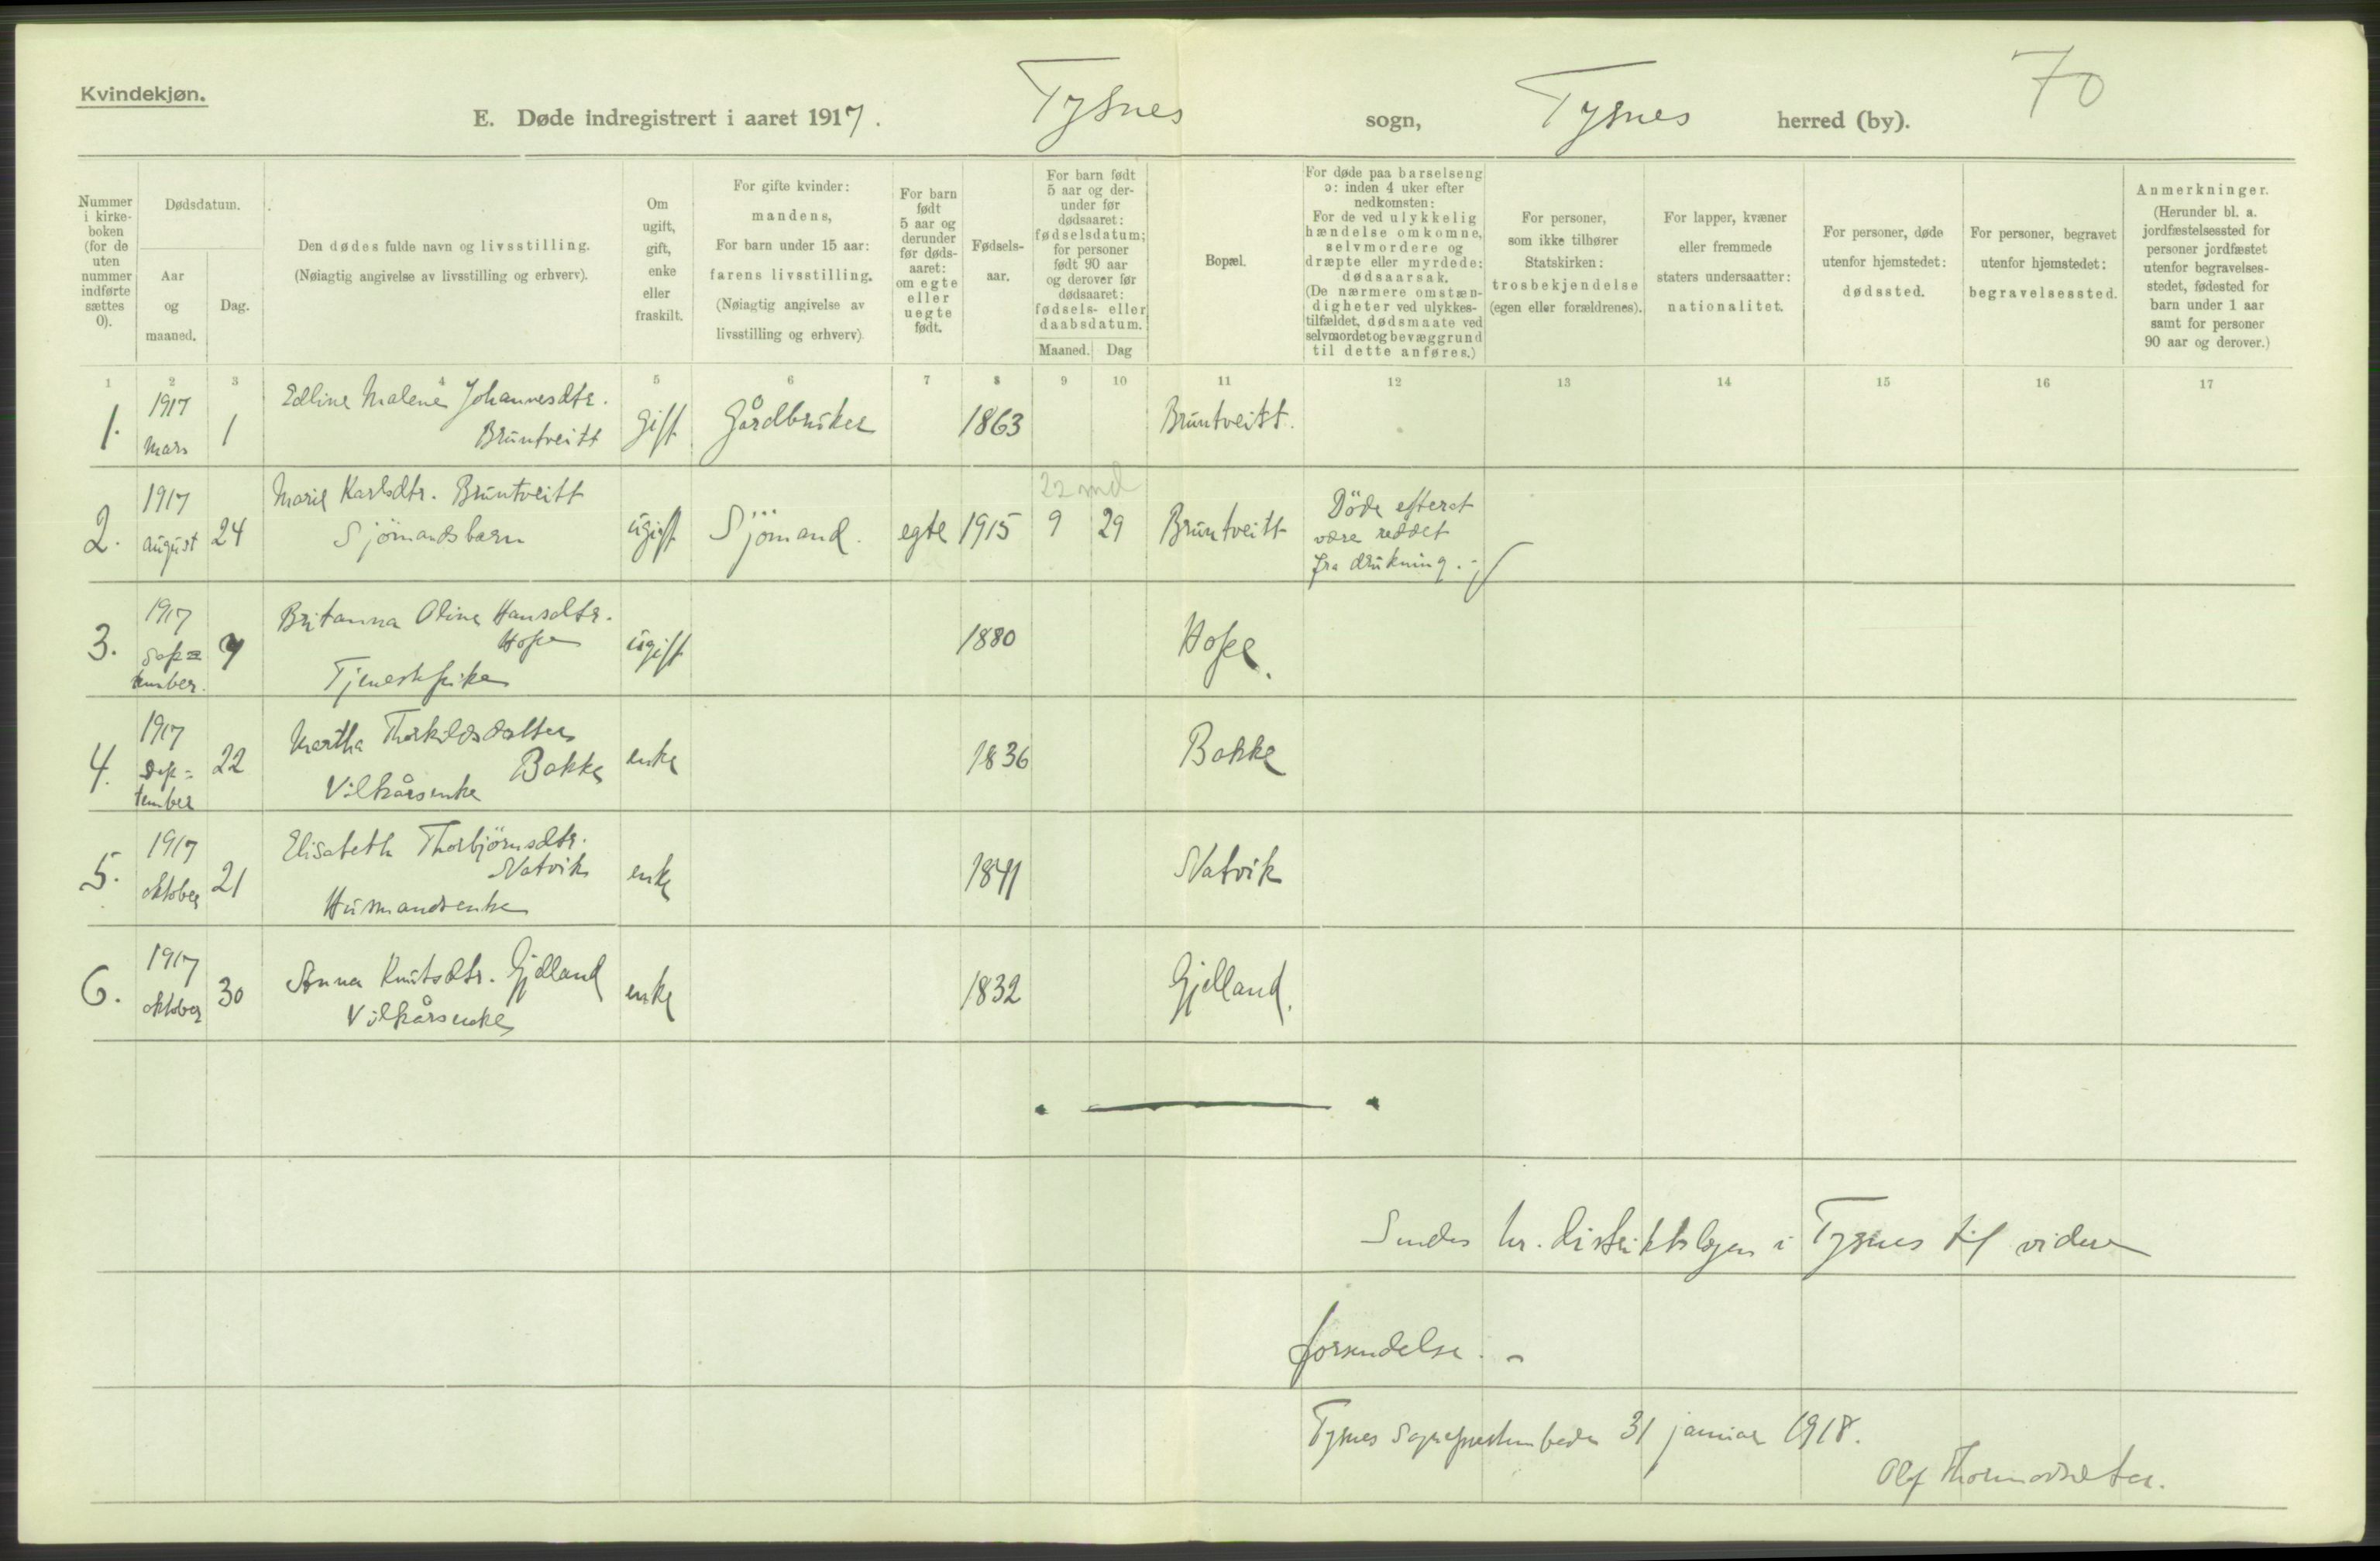 Kvindekjøn.
70
E. Døde indregistrert i aaret 1917. Tysnes sogn, Tysnes herred (by).
Nummer i kirke-
boken
(for de
uten
nummer
indførte
sættes
0).
Dødsdatum.
Aar
og
maaned.
Dag.
Den dødes fulde navn og livsstilling.
(Nøiagtig angivelse av livsstilling og erhverv).
Om
ugift,
gift,
enke
eller
fraskilt.
For gifte kvinder:
mandens,
For barn under 15 aar:
farens livsstilling.
(Nøiagtig angivelse av
livsstilling og erhverv)
For barn
født
5 aar og
derunder
før døds-
aaret:
om egte
eller
uegte
født.
Fødsels-
aar.
For barn født
5 aar og der-
under før
dødsaaret:
fødselsdatum;
for personer
født 90 aar
og derover før
dødsaaret:
fødsels- eller
daabsdatum.
Maaned. Dag
Bopæl.
For døde paa barselseng
ɔ: inden 4 uker efter
nedkomsten:
For de ved ulykkelig
hændelse omkomne,
selvmordere og
dræpte eller myrdede:
dødsaarsak.
(De nærmere omstæn-
digheter ved ulykkes-
tilfældet, dødsmaate ved
selvmordet og bevæggrund
til dette anføres.)
For personer,
som ikke tilhører
Statskirken:
trosbekjendelse
(egen eller forældrenes).
For lapper, kvæner
eller fremmede
staters undersaatter:
nationalitet.
For personer, døde
utenfor hjemstedet:
dødssted.
For personer, begravet
utenfor hjemstedet:
begravelsessted.
Anmerkninger.
(Herunder bl. a.
jordfæstelsessted for
personer jordfæstet
utenfor begravelses-
stedet, fødested for
barn under 1 aar
samt for personer
90 aar og derover.)
1 2 3 4 5 6 7 8 9 10 11 12 13 14 15 16 17
1. 1917 Mars 1 Edline Malene Johannesdtr.
Bruntveitt gift Gårdbruker 1863 Bruntveitt.
2. 1917 august 24 Marie Karlsdtr. Bruntveitt
Sjömandsbarn ugift Sjömand. egte 1915 22 md 9 29 Bruntveitt Döde efterat
være reddet
fra drukning.
3. 1917 Sep=
tember. 7 Britanna Oline Hansdtr.
Hope
Tjenestpike ugift 1880 Hope.
4. 1917 Sep=
tember 22 Martha Thorkildsdatter
Bakke
Vilkårsenke enke 1836 Bakke
5. 1917 oktober 21 Elisabeth Thorbjörnsdtr.
Natvik
Husmandsenke enke 1841 Natvik
6. 1917 oktober 30 Anna Knutsdtr. Gjelland
Vilkårsenke enke 1832 Gjelland.
Sendes hr. distriktslægen i Tysnes til videre
forsendelse. -
Tysnes Sogneprestembede 31 januar 1918.
Olaf Thormodsæter.